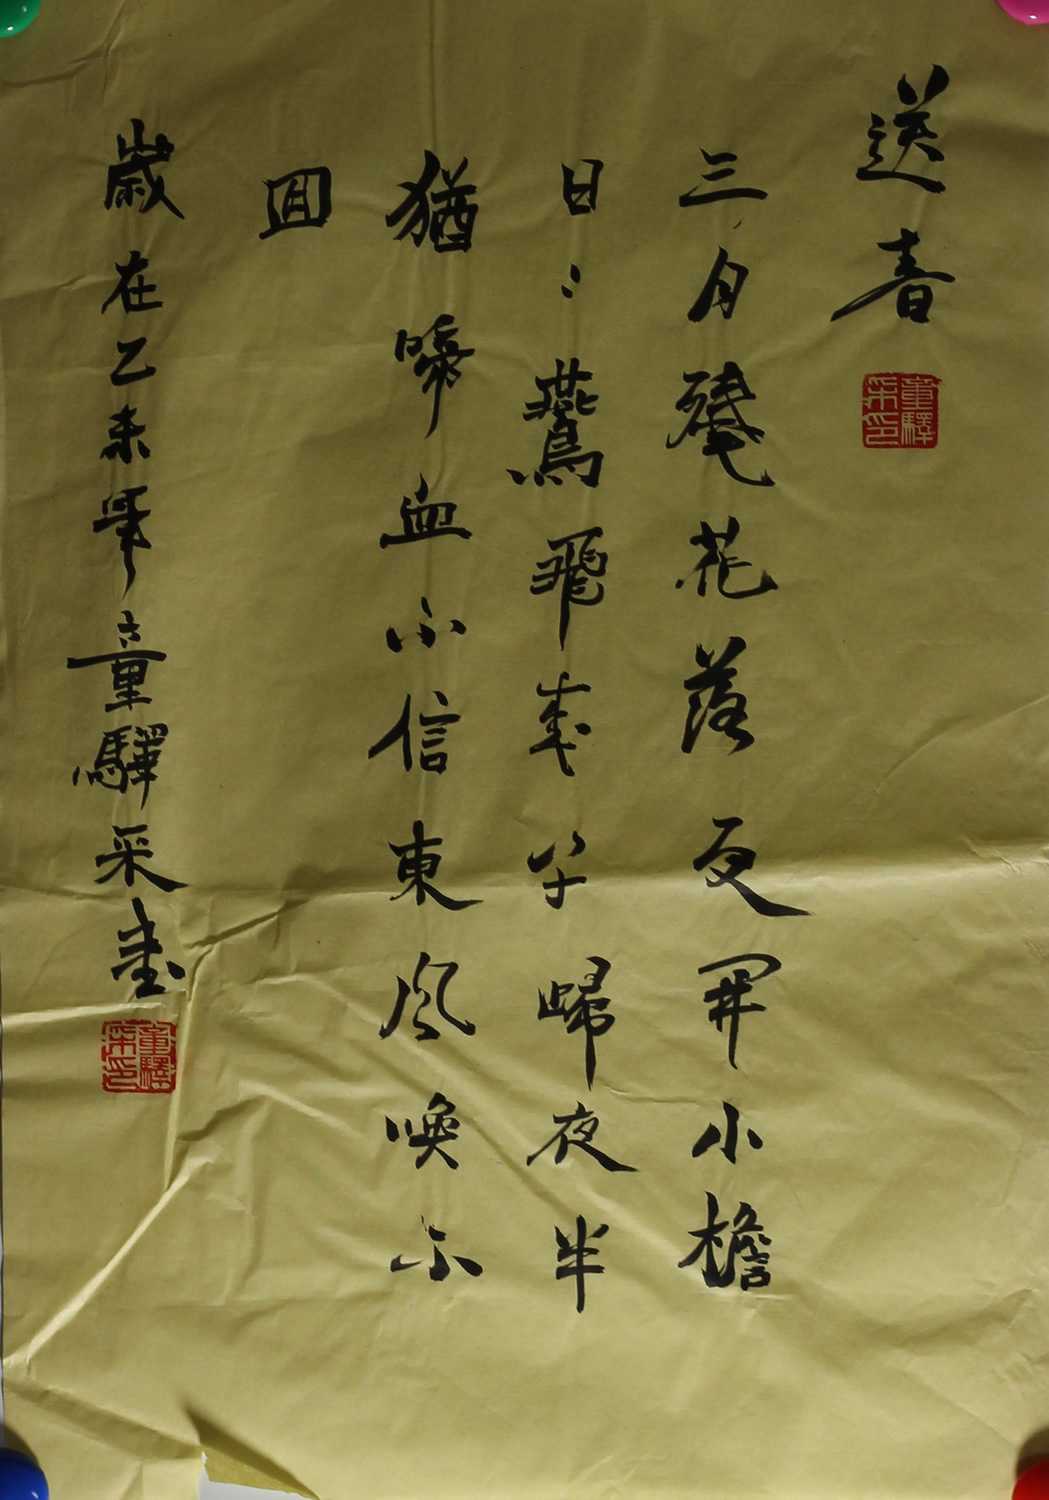 送春
童驛采印
三月殘花落更開小檐
日〻鷰飛來子歸夜半
猶啼血不信東風喚不
囬
歲在乙未童驛采書
童驛采印